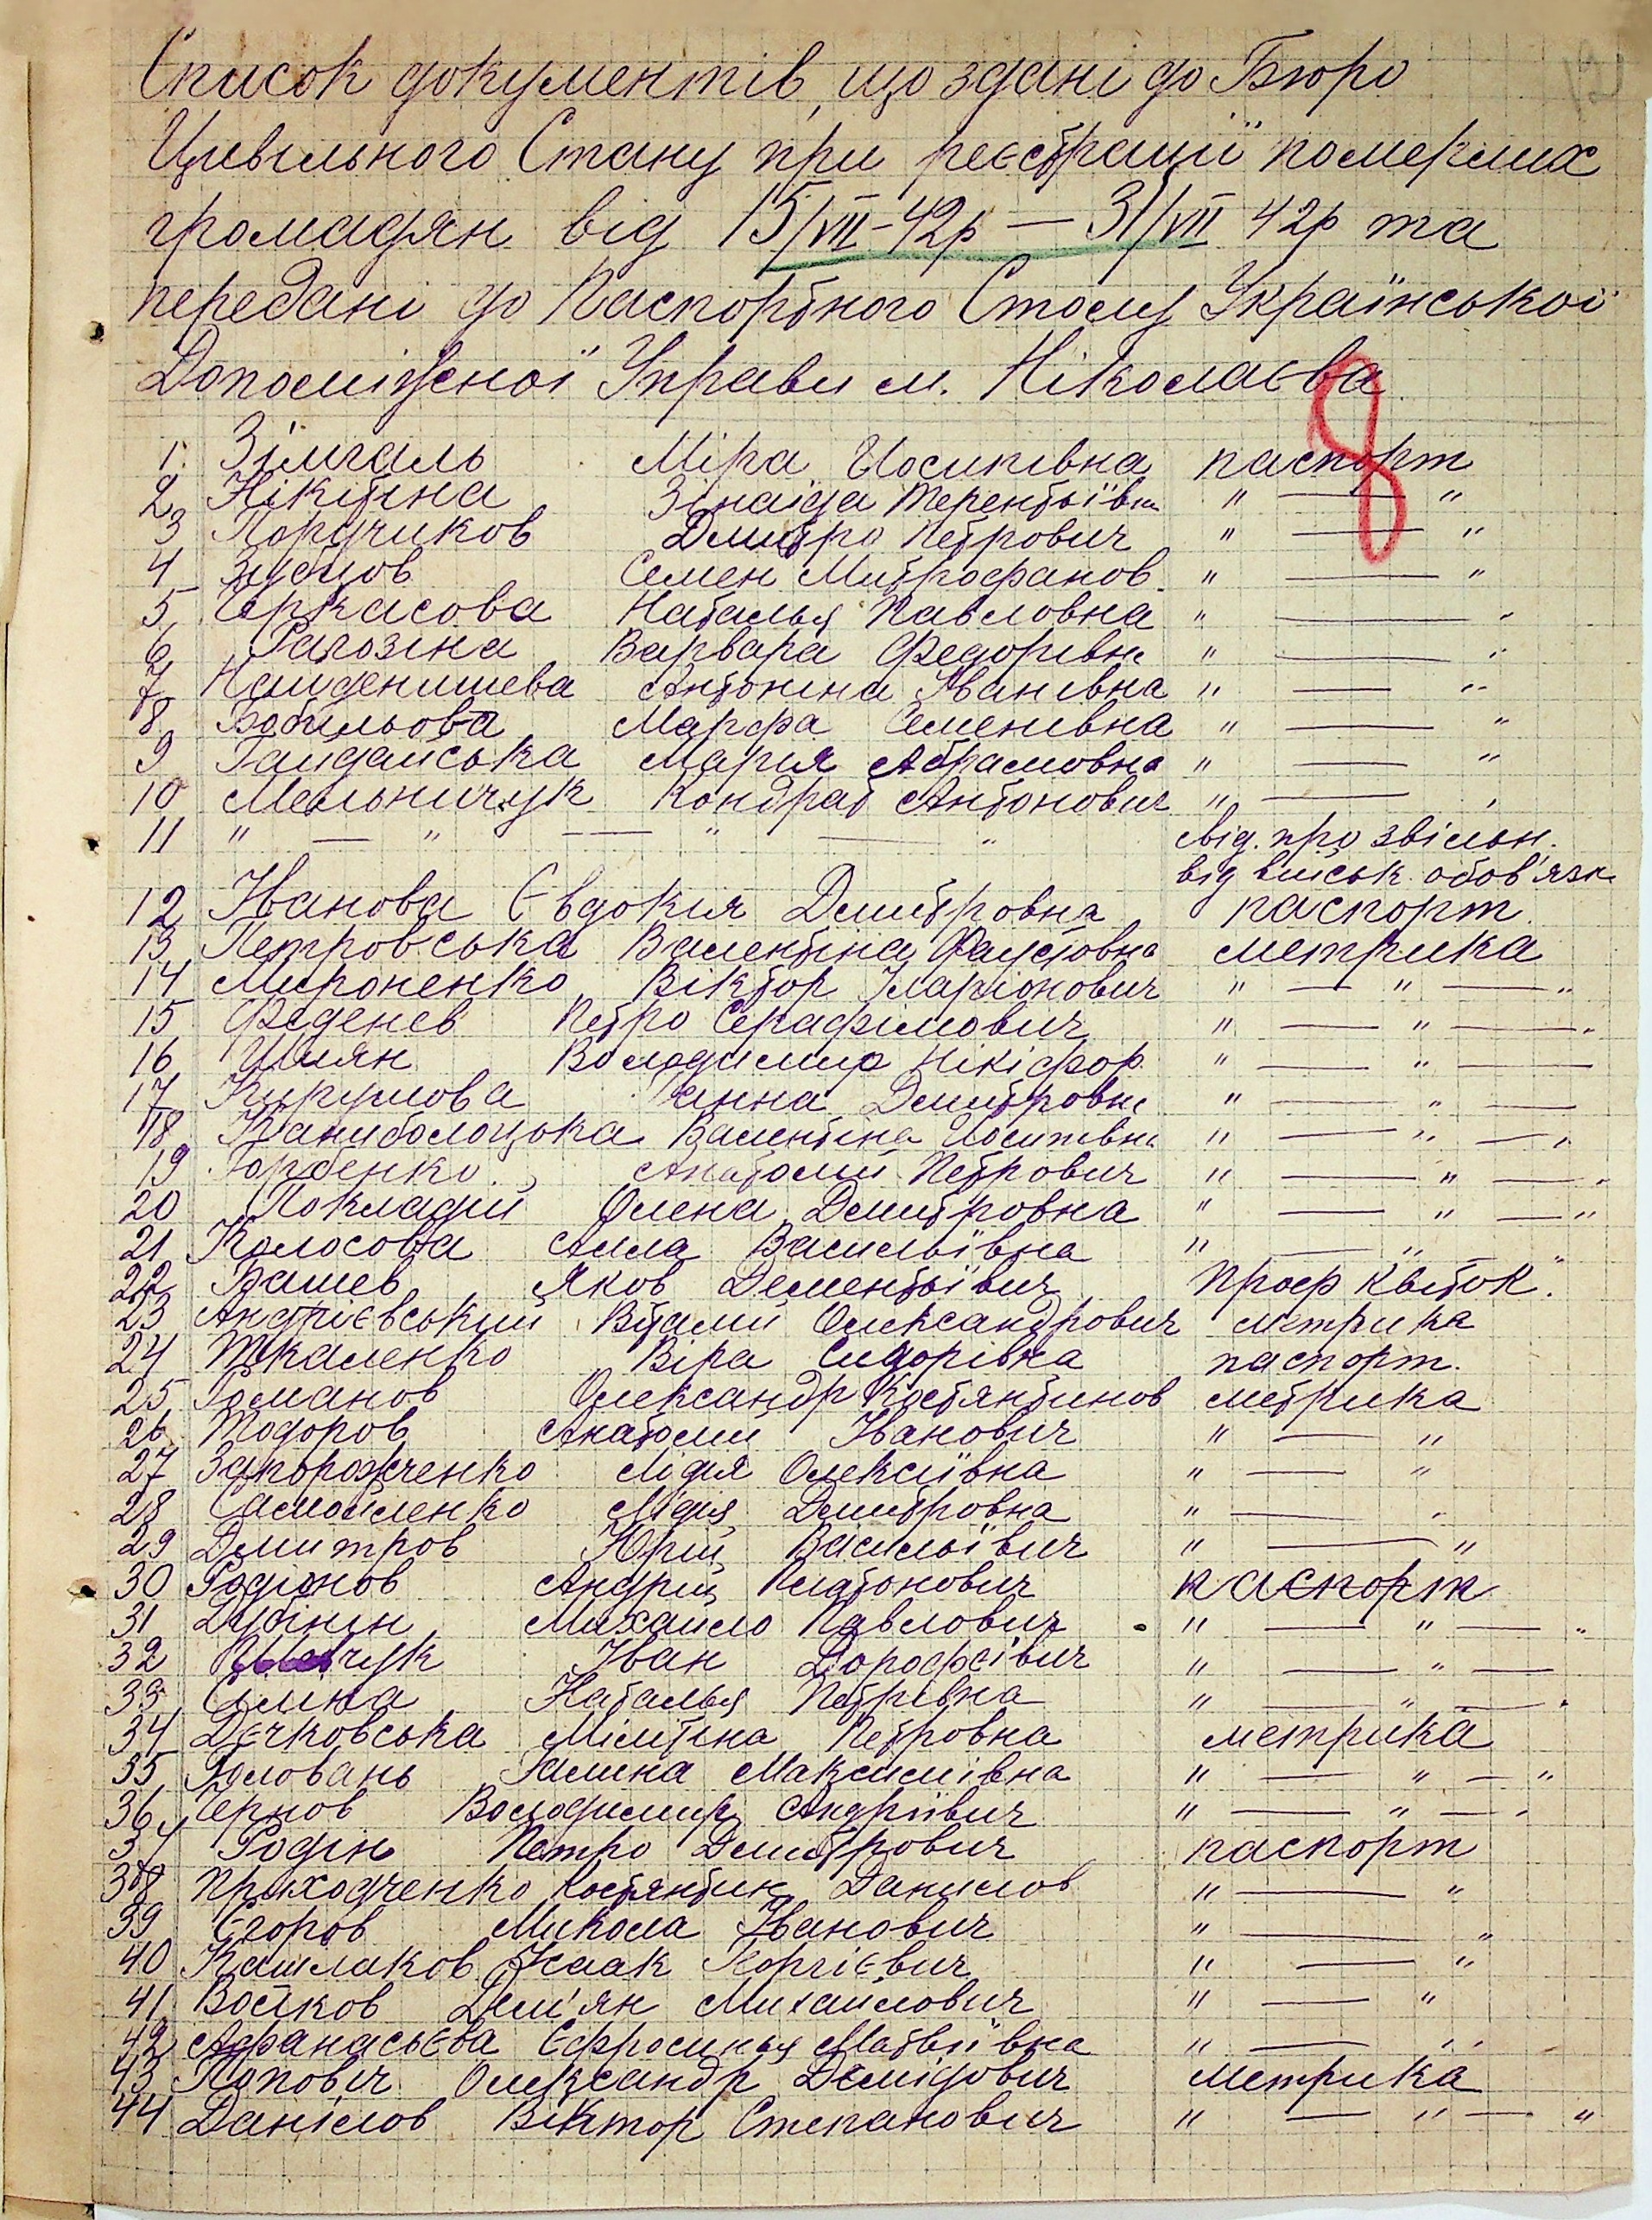 Список документів, що здані до Бюро
Цивільного Стану при реєстрації померлих
громадян від 15/VII-42р — 31/VII 42р та
передані до Паспортного Столу Української
Допоміжної Управи м. Ніколаєва
8
1. Зімгаль Міра Йосипівна паспорт
2 Нікітіна Зінаїда Терентьївна " — "
3 Поручиков Дмитро Петрович " — "
4 Зубцов Семен Митрофанов. " — "
5 Черкасова Наталья Павловна " — "
6 Рагозіна Варвара Федорівн " — "
7 Найденишева Антоніна Іванівна " — "
8 Бобильова Марфа Семенівна " — "
9 Гайдайська Марія Абрамовна " — "
10 Мельничук Кондрат Антонович " — "
11 " — " — " — " свід. про звільн.
від військ. обов'язк.
12 Іванова Євдокія Дмитровна паспорт
13 Петровська Валентіна Фаустовна метрика
14 Мироненко Віктор Іларіонович " — " — "
15 Феденев Петро Серафимович " — " — "
16 Володимир Нікіфор. " — " —
17 Ганна Дмитровна " — " —
18 Валентіна Йосипівна " — " — "
19 Горбенко Анатолій Петрович " — " — "
20 Покладій Олена Дмитровна " — " — "
21 Колосова Алла Васильївна " — " — "
22 Яков Дементьївич Проф квиток.
23 Андрієвський Віталій Олександрович метрика
24 Ткаленко Віра Сидорівна паспорт.
25 Романов Олександр Костянтинов метрика
26 Тодоров Анатолий Іванович " — "
27 Запорожченко Лідія Олексіївна " — "
28 Самойленко Лідія Дмитровна " — "
29 Дмитров Юрій Васильївич " — "
30 Родіонов Андрій Платонович паспорт
31 Дубінін Михайло Павлович " — " — "
32 Іван Дорофеївич " — " —
33 Сіліна Наталья Петрівна " — " — "
34 Дєчковська Мілітіна Петровна метрика
35 Головань Галина Максимівна " — " — "
36 Чернов Володимир Андріївич " — " — "
37 Родін Петро Дмитрович паспорт
38 Приходченко Костянтин Данилов " — "
39 Єгоров Микола Іванович " — "
40 Кашлаков Ісаак Георгієвич " — "
41 Войков Дем'ян Михайлович " — "
42 Афанасьєва Єфросинья Матвіївна " — "
43 Попович Олександр Демідович метрика
44 Данілов Віктор Степанович " — " — "